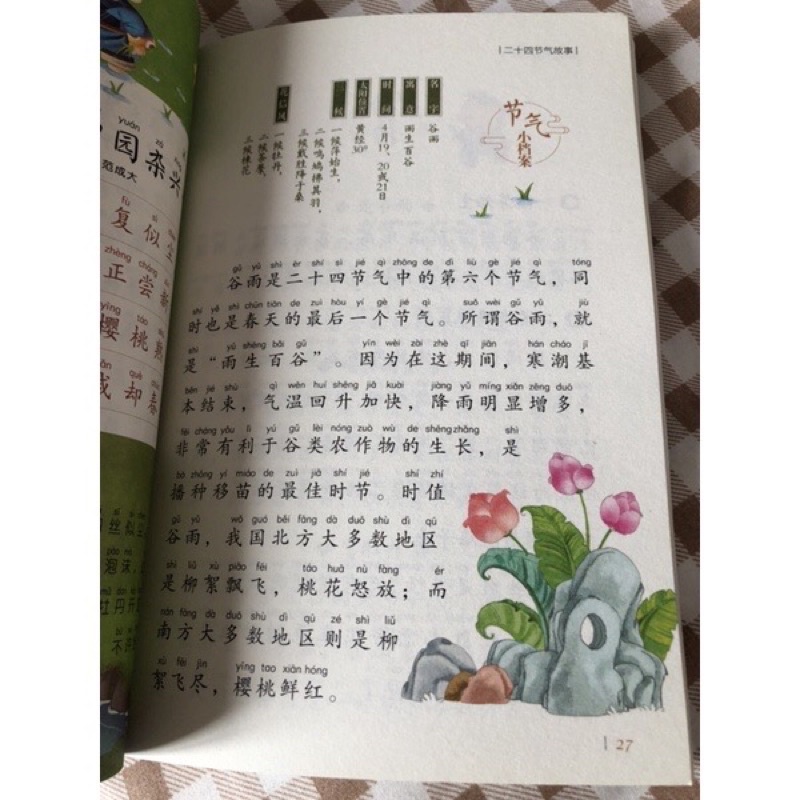 yuán zá
园杂兴
范成大
fù sì
复似
zhèng cháng
正尝
yīng táo
樱桃
què
却春
丝似
泡沫
牡丹开
二十四节气故事
节气
小档案
名字
谷雨
寓意
雨生百谷
时间
4月19、20或21日
太阳位置
黄经30°
三候
一候萍始生,
二候鸣鸠拂其羽,
三候戴胜降于桑
花信风
一候牡丹,
二候荼蘼,
三候楝花
gǔ yǔ shì èr shí sì jié qì zhōng de dì liù gè jié qì tóng
谷雨是二十四节气中的第六个节气,同
shí yě shì chūn tiān de zuì hòu yí gè jié qì suǒ wèi gǔ yǔ jiù
时也是春天的最后一个节气。所谓谷雨,就
shì yǔ shēng bǎi gǔ yīn wèi zài zhè qī jiān hán cháo jī
是“雨生百谷”。因为在这期间,寒潮基
běn jié shù qì wēn huí shēng jiā kuài jiàng yǔ míng xiǎn zēng duō
本结束,气温回升加快,降雨明显增多,
fēi cháng yǒu lì yú gǔ lèi nóng zuò wù de shēng zhǎng shì
非常有利于谷类农作物的生长,是
bō zhǒng yí miáo de zuì jiā shí jié shí zhí
播种移苗的最佳时节。时值
gǔ yǔ wǒ guó běi fāng dà duō shù dì qū
谷雨,我国北方大多数地区
shì liǔ xù piāo fēi táo huā nù fàng ér
是柳絮飘飞,桃花怒放;而
nán fāng dà duō shù dì qū zé shì liǔ
南方大多数地区则是柳
xù fēi jìn yīng tao xiān hóng
絮飞尽,樱桃鲜红。
27